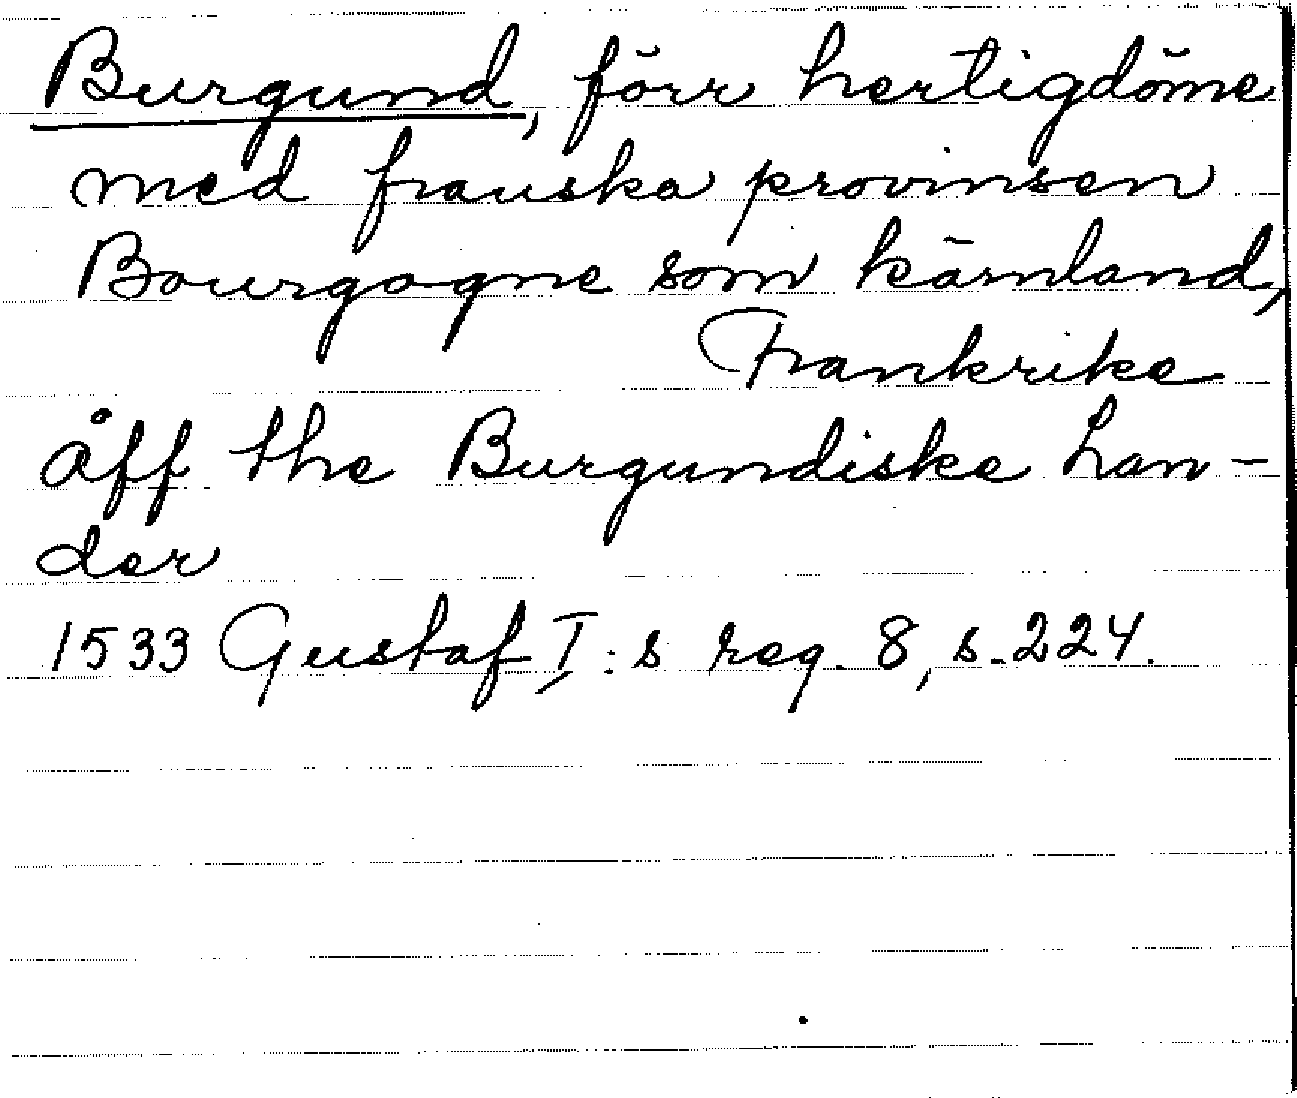 Burgund, förr hertigdöme
med franska provinsen
Bourgogne som kärnland,
Frankrike
åff the Burgundiske Lan-
der
1533 Gustaf I:s reg. 8, s. 224.